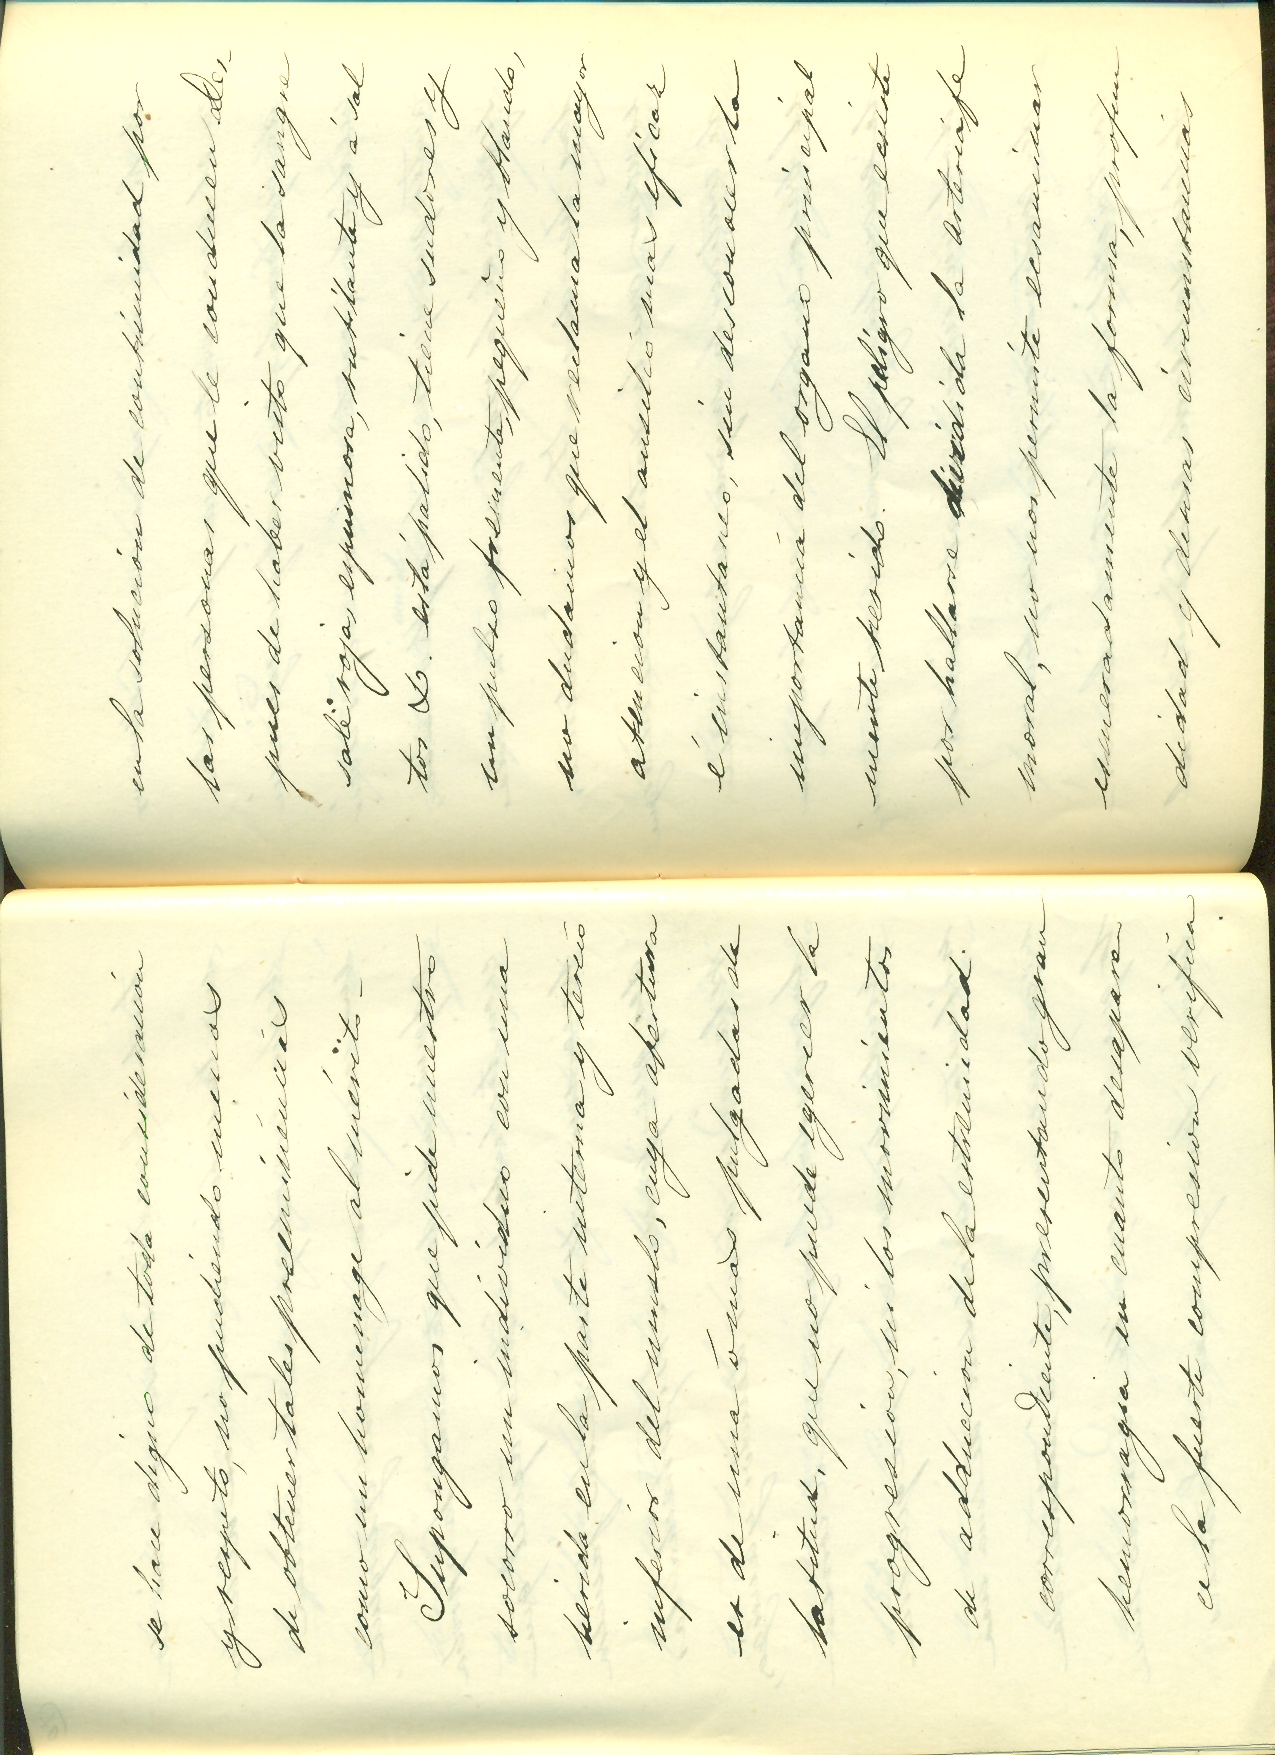 se hace digno de toda consideracion
y respeto, no pudiendo menos
de obtener tales preeminencias
como un homenage al mérito.-
Supongamos que pide nuestro
socorro un individuo con una
herida en la parte interna y tercio
inferior del muslo, cuya abertura
es de una ó mas pulgadas de
latitud, que no puede egercer la
progresion, ni los movimientos
de adduccion de la estremidad
correspondiente, presentando gran
hemorragia en cuanto desapare-
ce la fuerte compresion verifica
en la solucion de continuidad por
las personas que le conducen. Des-
pues de haber visto que la sangre
sale roja, espumosa, rutilante y á sal
tos &. está palido, tiene sudores y
un pulso frecuente, pequeño y blando,
no dudamos que reclama la mayor
atencion y el ausilio mas eficaz
é instantaneo, sin desconocer la
importancia del organo principal
mente herido. El peligro que ecsiste
por hallarse dividida la arteria fe
moral, no nos permite ecsaminar
esmeradamente la forma, profun
didad y demas circunstancias